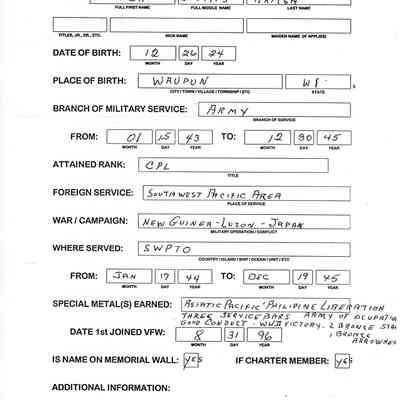 FULL FIRST NAME FULL MIDDLE NAME LAST NAME
TITLES, JR., SR., ETC. NICK NAME MAIDEN NAME (IF APPLIES)
DATE OF BIRTH: 12 26 24
MONTH DAY YEAR
PLACE OF BIRTH: WAUPUN WI.
CITY / TOWN / VILLAGE / TOWNSHIP / ETC STATE
BRANCH OF MILITARY SERVICE: ARMY
BRANCH OF SERVICE
FROM: 01 15 43 TO: 12 30 45
MONTH DAY YEAR MONTH DAY YEAR
ATTAINED RANK: CPL
TITLE
FOREIGN SERVICE: SOUTHWEST PACIFIC AREA
PLACE OF SERVICE
WAR / CAMPAIGN: NEW GUINEA - LUZON - JAPAN
MILITARY OPERATION / CONFLICT
WHERE SERVED: SWPTO
COUNTRY / ISLAND / SHIP / OCEAN / UNIT / ETC
FROM: JAN 17 44 TO: DEC 19 45
MONTH DAY YEAR MONTH DAY YEAR
SPECIAL METAL(S) EARNED: ASIATIC PACIFIC PHILIPINE LIBERATION
THREE SERVICE BARS ARMY OF OCCUPATI
GOOD CONDUCT - WWII VICTORY - 2 BRONZE STA
1 BRONZE
ARROWHEA
DATE 1st JOINED VFW: 8 31 96
MONTH DAY YEAR
IS NAME ON MEMORIAL WALL: YES IF CHARTER MEMBER: YES
ADDITIONAL INFORMATION: